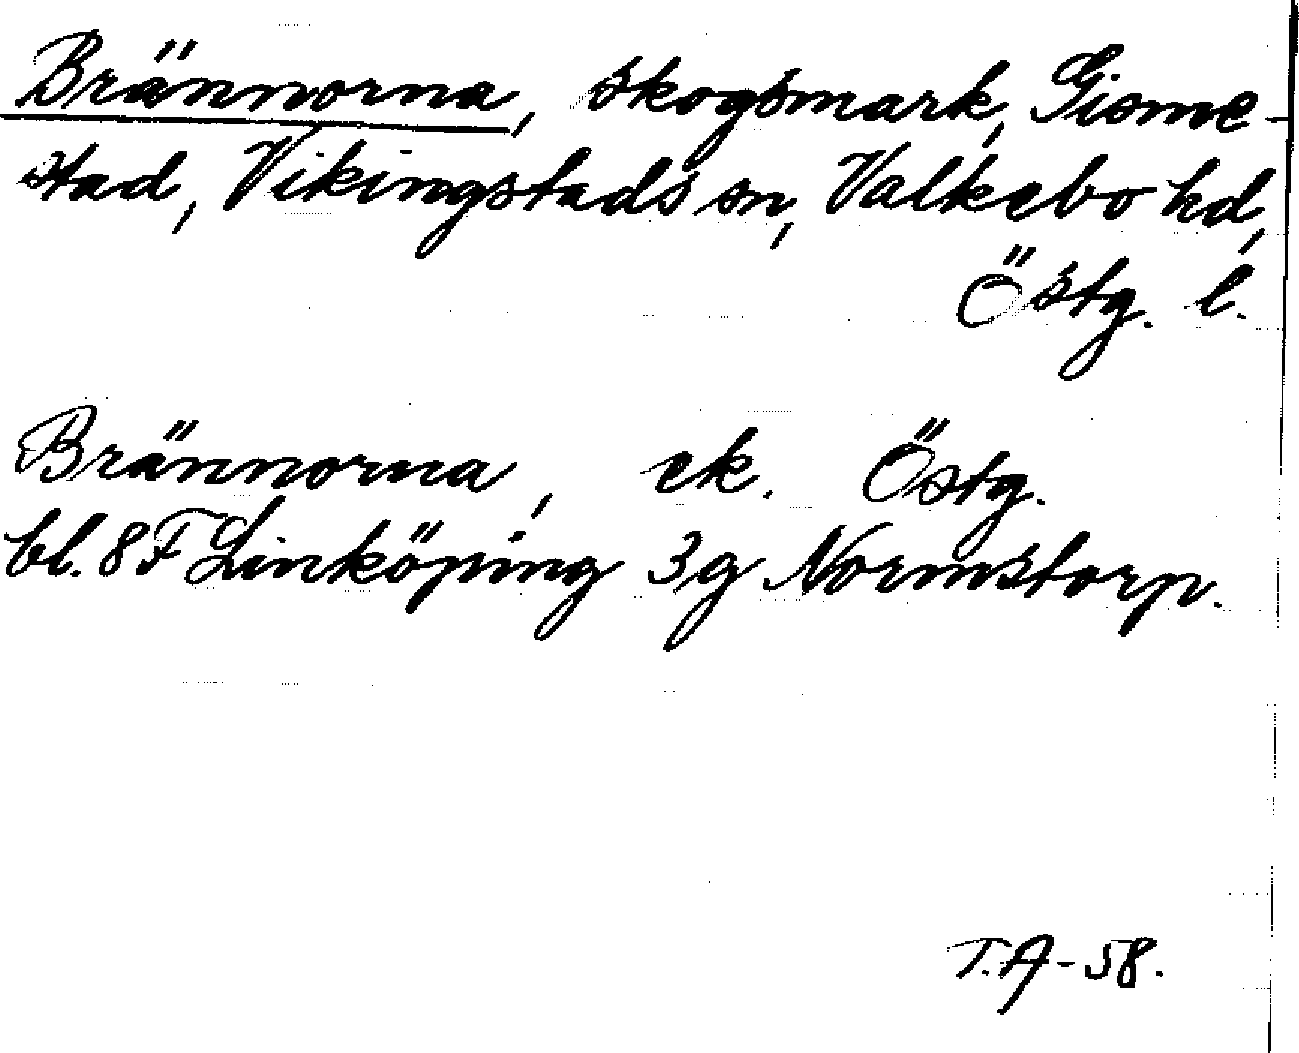 Brännorna, skogsmark, Gisme-
stad, Vikingstads sn, Valkebo hd,
Östg. l.
Brännorna, ek. Östg.
bl. 8 F Linköping 3g Normstorp.
T.A-58.